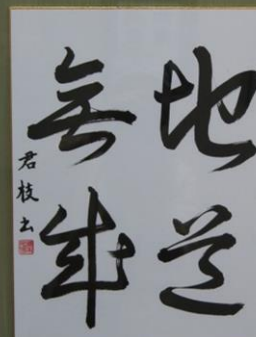 地道
無成
君枝書